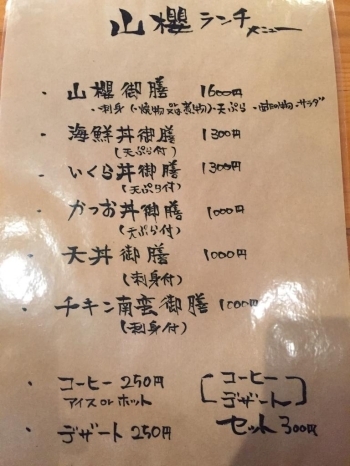 山櫻ランチメニュー
・山櫻御膳 1600円
・刺身(・焼物又は煮物)・天ぷら・酢の物・サラダ
・海鮮丼御膳 1300円
(天ぷら付)
・いくら丼御膳 1300円
(天ぷら付)
・かつお丼御膳 1000円
(天ぷら付)
・天丼御膳 1000円
(刺身付)
・チキン南蛮御膳 1000円
(刺身付)
・コーヒー 250円
アイス or ホット
・デザート 250円
[コーヒー
デザート]
セット 300円